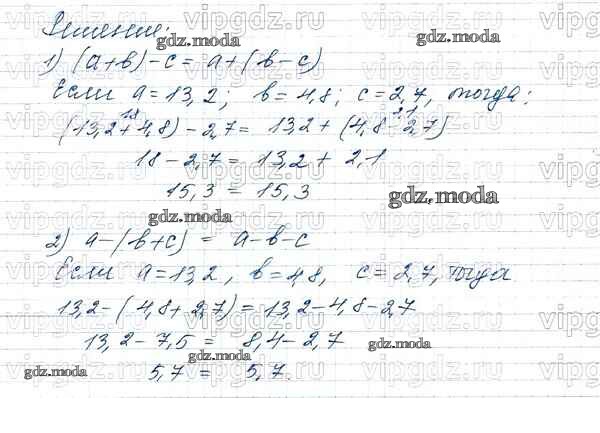 Решение:
1) (а+в)-с = а+(в-с)
Если а=13,2; в=4,8; с=2,7, тогда:
18 2,1
(13,2+4,8) - 2,7 = 13,2 + (4,8-2,7)
18 - 2,7 = 13,2 + 2,1
15,3 = 15,3
2) а-(в+с) = а-в-с
Если а=13,2, в=4,8, с=2,7, тогда
13,2-(4,8+2,7) = 13,2-4,8-2,7
13,2-7,5 = 8,4-2,7
5,7 = 5,7.
gdz.moda
gdz.moda
gdz.moda
gdz.moda
gdz.moda
gdz.moda
gdz.moda
gdz.moda
vipgdz.ru